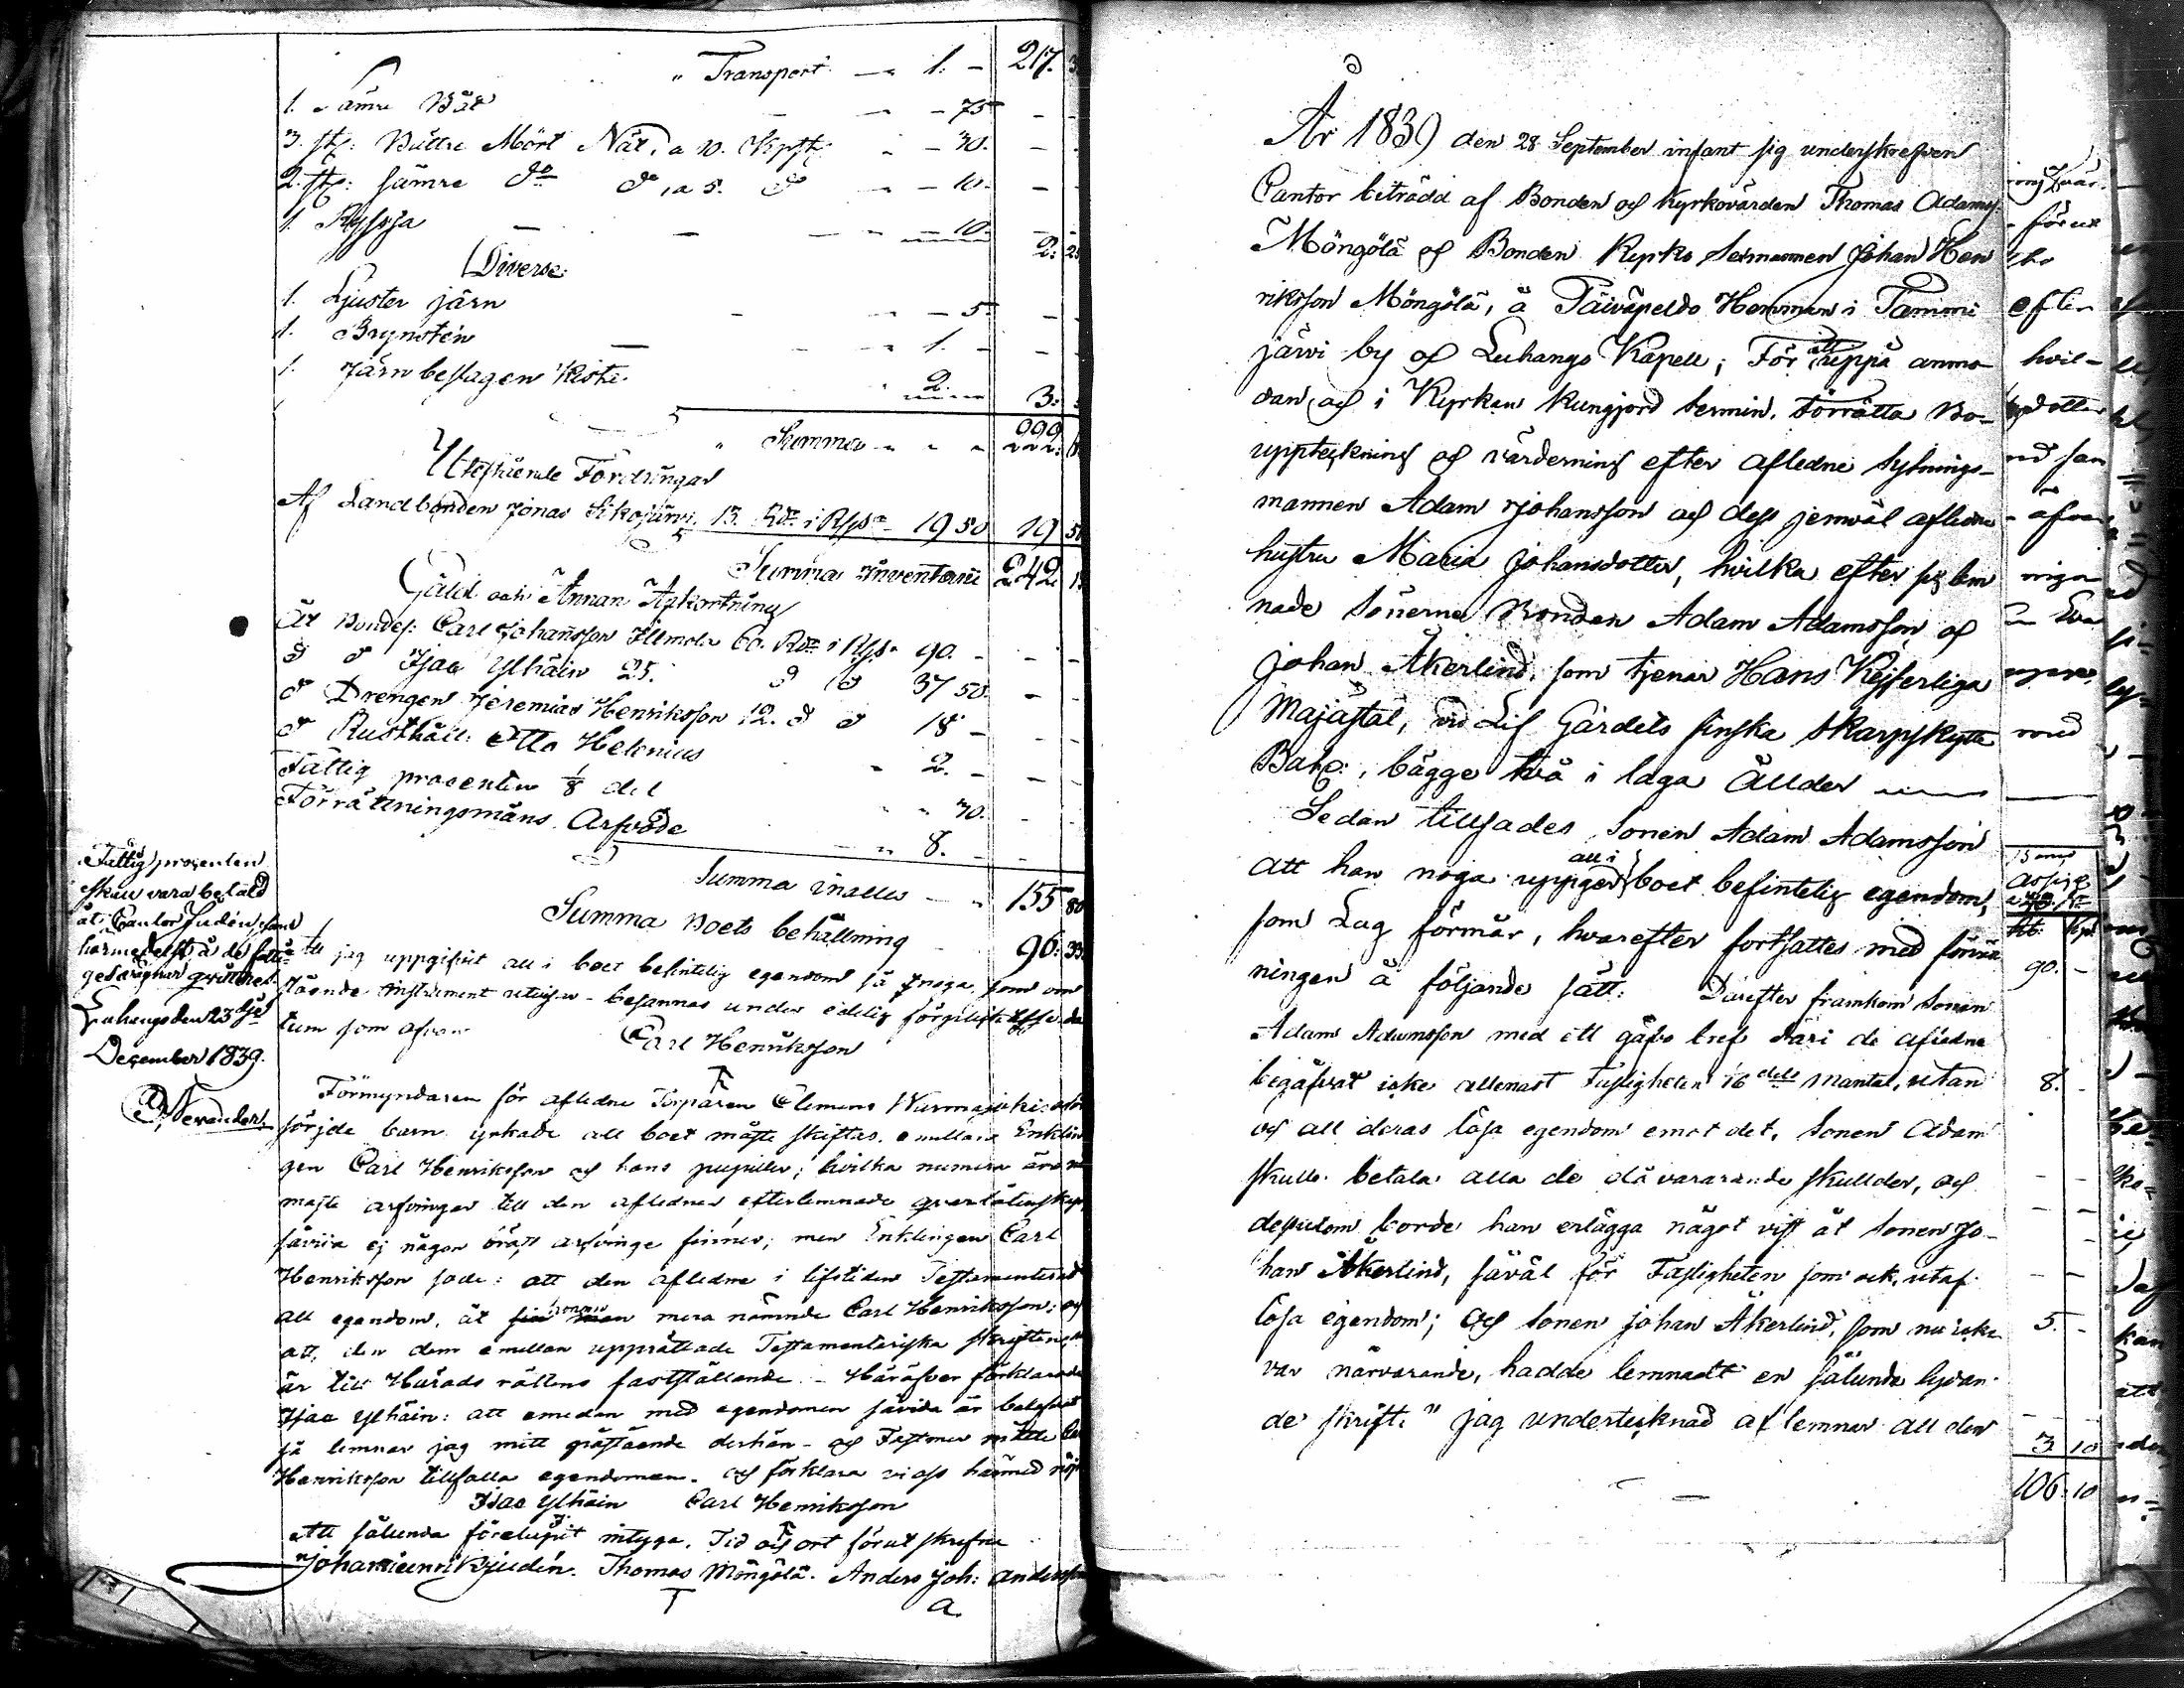 " Transport — " 1. — 217.
1. Sämre Båt — — 75 —
3. st: Bättre Mört Nät, a 10. Kpst: — — 30. —
2. st: sämre do do, a 5. do — — 10. —
1. Ryssja — — — — 10. —
2: 25
Diverse
1. Ljuster järn — — 5. —
1. Brynsten — — 1. —
1. Järn beslagen Kista 2. 3:
" Summa " " " 222:
Utestående Fordringar
Af Landbonden Jonas Sikojärvi 13. Rd i Rgs 19 50 19 50
Summa Inventarii 242
Gäld och Annan Afkortning
Åt Bondes: Carl Johansson Illmola 60. Rd i Rgs 90. —
d d Isac Ylhäin 25. d d 37 50. —
d Drengen Jeremias Henriksson 12. d d 18 —
d Rusthåll: Otto Helenius " 2. —
Fattig procenten 1/8 del " " 30.
Förrättningsmäns Arfvode — " 8. —
Summa inalles — " 155 80
Summa Boets behållning — 96: 33
Att jag uppgifvit all i boet befintelig egendom så noga, som om
stående instrument utvisar - besannas under edelig förpligtelse da
tum som ofvan
Carl Henriksson
Förmyndaren för afledne Torparen Clemens Wurmajoki
sörjde barn yrkade att boet måste skiftas emellan Enklin
gen Carl Henriksson och hans pupiller; hvilka numera äro nä
maste arfvingar till den aflednes efterlemnade qvarlåtenskap,
såvida ej någon bröst arfvinge finnes; men Enklingen Carl
Henriksson sade: att den afledne i lifstiden Testamenterat
all egendom, åt honom mera nämnde Carl Henriksson; och
att, den dem emellan upprättade Testamentariska skriften,
är till Härads rättens fastställande - Häröfver förklarade
Isac Ylhäin: att emedan med egendomen såvida är belefvat
så lemnar jag mitt påstående derhän - och Fastmer måtte Carl
Henriksson tillfalla egendomen. och förklara vi oss härmed nöjd
Isac Ylhäin Carl Henriksson
Att sålunda förelupit intyga. Tid och ort förut skrefne
Johan Henrik Judén. Thomas Möngölä. Anders Joh: Andersson
T a.
Fattig procenten
skall vara betald
åt Cantor Judén, som
härmedelst, å de fatti-
gas vägnar qvitteras
Luhango den 23dje
December 1839.
År 1839 den 28 September infant sig underskrefven
Cantor biträdd af Bonden och Kyrkovärden Thomas Adamss:
Möngölä och Bonden Kyrko Sexmannen Johan Hen
riksson Möngölä, å Päiväpeldo Hemman i Tammi
järvi by och Luhango Kapell; För att uppå anmo-
dan, och i Kyrkan kungjord termin, förrätta Bo-
uppteckning och värdering efter afledne Sytnings-
mannen Adam Johansson och dess jemväl afledne
hustru Maria Johansdotter, hvilka efter sig lem
nade Sönerna Bonden Adam Adamsson och
Johan Åkerlind, som tjenar Hans Kejserliga
Majästät, vid Lif Gardets finska Skarpskytte
Bat:, bägge två i laga Ållder
Sedan tillsades Sonen Adam Adamsson
att han noga uppger all i boet befintelig egendom,
som Lag förmår, hvarefter fortsattes med förrätt
ningen å följande sätt: Därefter framkom Sonen
Adam Adamsson med ett gåfvo bref däri de afledne
begåfvat icke allenast Fastigheten 1/6 dels Mantal, utan
och all deras lösa egendom emot det, Sonen Adam
skulle betala alla de då varande skullder, och
dessutom borde han erlägga något vist åt Sonen Jo-
han Åkerlind, såväl för Fastigheten som ock utaf
lösa egendom; Och Sonen Johan Åkerlind, som nu icke
var närvarande, hadde lemnadt en sålunda lydan-
de skrift: " Jag undertecknad aflemnar all den
förut
efter
hvil-
dotter
90. —
8. —
5. —
3 10
106: 10